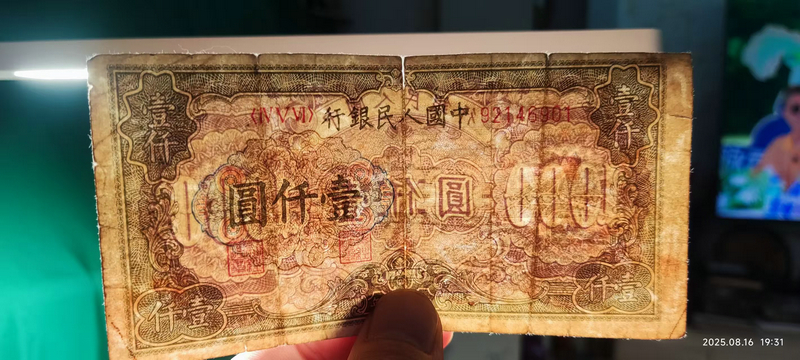 壹仟
壹仟
〈ⅣⅤⅥ〉
行銀民人國中
92146901
圓仟壹
圓
仟壹
仟壹
2025.08.16 19:31